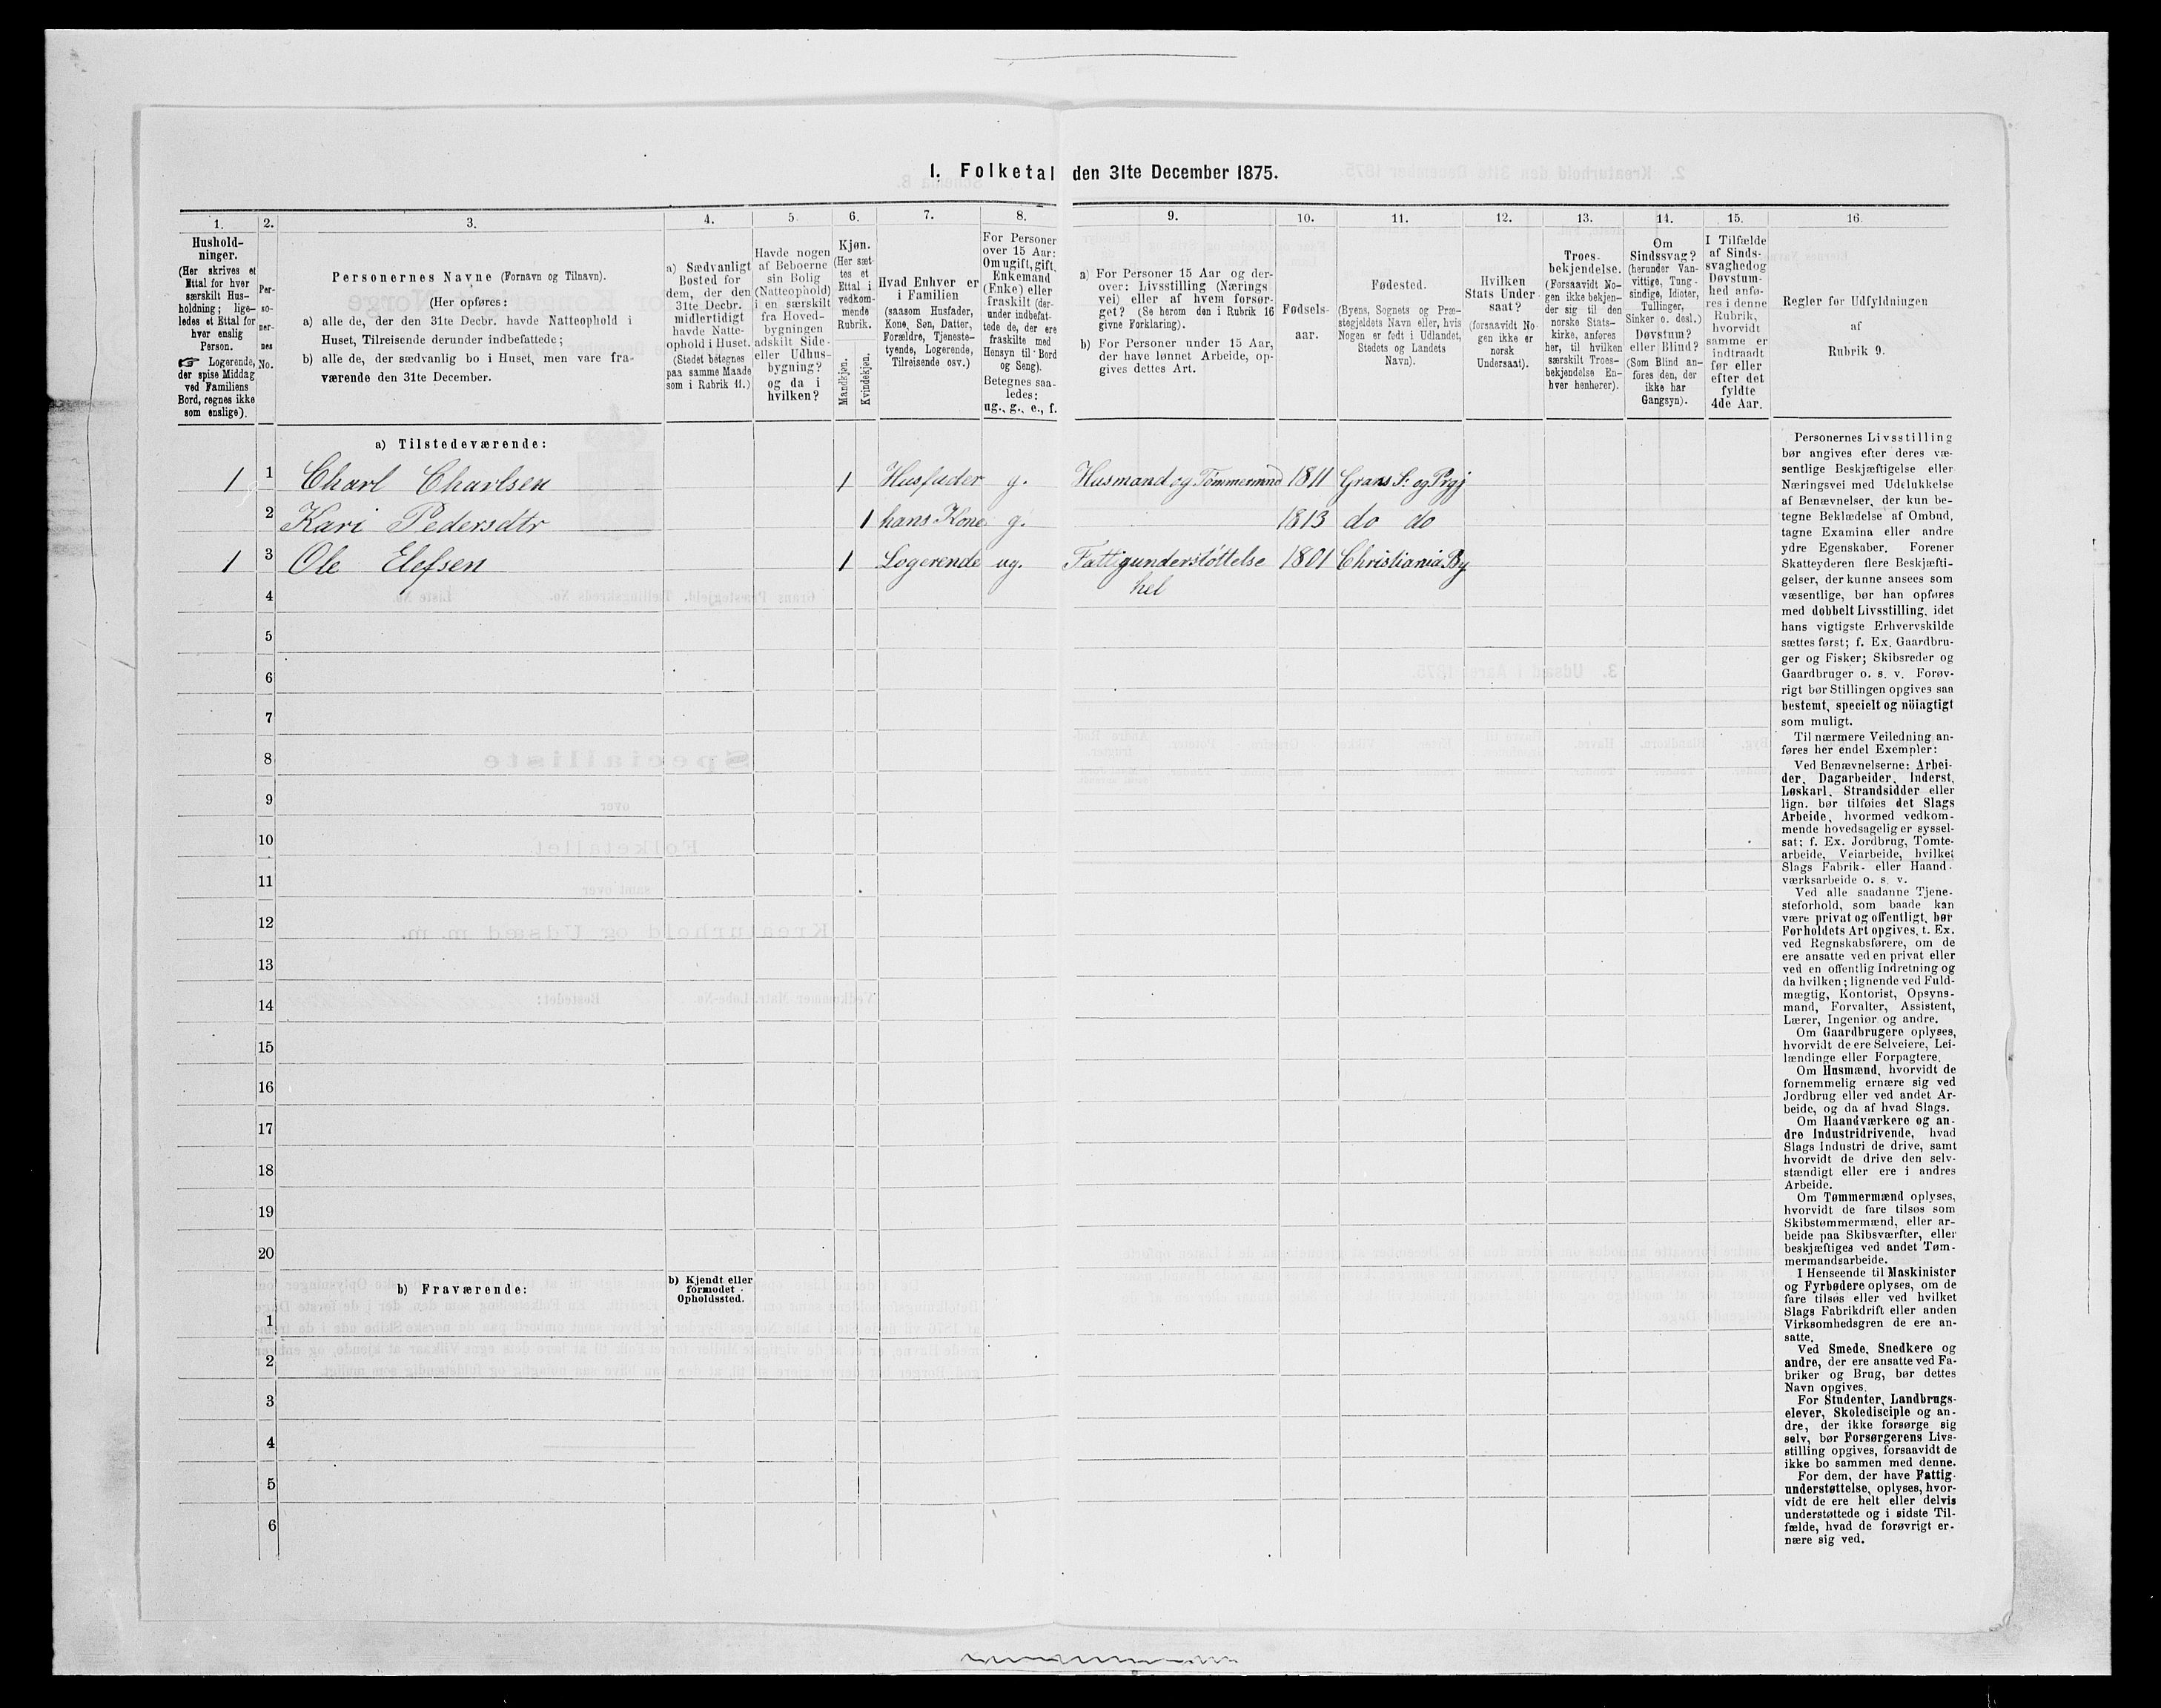 1. Folketal den 31te December 1875.
1.
2.
3.
4.
5.
6.
7.
8.
9.
10.
11.
12.
13.
14.
15.
16.
Hushold-
ninger.
(Her skrives et
Ettal for hver
særskilt Hus-
holdning; lige-
ledes et Ettal for
hver enslig
Person.
☞ Logerende,
der spise Middag
ved Familiens
Bord, regnes ikke
som enslige).
Per-
so-
ner-
nes
No.
Personernes Navne (Fornavn og Tilnavn).
(Her opføres:
a) alle de, der den 31te Decbr. havde Natteophold i
Huset, Tilreisende derunder indbefattede;
b) alle de, der sædvanlig bo i Huset, men vare fra-
værende den 31te December.
a) Sædvanligt
Bosted for
dem, der den
31te Decbr.
midlertidigt
havde Natte-
ophold i Huset.
(Stedet betegnes
paa samme Maade
som i Rubrik 11.)
Havde nogen
af Beboerne
sin Bolig
(Natteophold)
i en særskilt
fra Hoved-
bygningen
adskilt Side-
eller Udhus-
bygning?
og da i
hvilken?
Kjøn.
(Her sæt-
tes et
Ettal i
vedkom-
mende
Rubrik.
Mandkjøn.
Kvindekjøn.
Hvad Enhver er
i Familien
(saasom Husfader,
Kone, Søn, Datter,
Forældre, Tjeneste-
tyende, Logerende,
Tilreisende osv.)
For Personer
over 15 Aar:
Om ugift, gift,
Enkemand
(Enke) eller
fraskilt (der-
under indbefat-
tede de, der ere
fraskilte med
Hensyn til Bord
og Seng).
Betegnes saa-
ledes:
ug., g., e., f.
a) For Personer 15 Aar og der-
over: Livsstilling (Nærings-
vei) eller af hvem forsør-
get? (Se herom den i Rubrik 16
givne Forklaring).
b) For Personer under 15 Aar,
der have lønnet Arbeide, op-
gives dettes Art.
Fødsels-
aar.
Fødested.
(Byens, Sognets og Præ-
stegjeldets Navn eller, hvis
Nogen er født i Udlandet,
Stedets og Landets
Navn).
Hvilken
Stats Under-
saat?
(forsaavidt No-
gen ikke er
norsk
Undersaat).
Troes-
bekjendelse.
(Forsaavidt No-
gen ikke bekjen-
der sig til den
norske Stats-
kirke, anføres
her, til hvilken
særskilt Troes-
bekjendelse En-
hver henhører).
Om
Sindssvag?
(herunder Van-
vittige, Tung-
sindige, Idioter,
Tullinger,
Sinker o. desl.)
Døvstum?
eller Blind?
(Som Blind an-
føres den, der
ikke har
Gangsyn).
I Tilfælde
af Sinds-
svaghed og
Døvstum-
hed anfø-
res i denne
Rubrik,
hvorvidt
samme er
indtraadt
før eller
efter det
fyldte
4de Aar.
Regler for Udfyldningen
af
Rubrik 9.
a) Tilstedeværende:
1 1 Charl Charlsen 1 Husfader g. Husmand og Tømmermand 1811 Grans S: og Prgj
2 Kari Pedersdtr 1 hans Kone g. 1813 do do
1 3 Ole Elefsen 1 Logerende ug. Fattigunderstøttelse 1801 Christiania By
hel
4
5
6
7
8
9
10
11
12
13
14
15
16
17
18
19
20
b) Fraværende:
b) Kjendt eller
formodet
Opholdssted.
1
2
3
4
5
6
Personernes Livsstilling
bør angives efter deres væ-
sentlige Beskjæftigelse eller
Næringsvei med Udelukkelse
af Benævnelser, der kun be-
tegne Beklædelse af Ombud,
tagne Examina eller andre
ydre Egenskaber. Forener
Skatteyderen flere Beskjæfti-
gelser, der kunne ansees som
væsentlige, bør han opføres
med dobbelt Livsstilling, idet
hans vigtigste Erhvervskilde
sættes først; f. Ex. Gaardbru-
ger og Fisker; Skibsreder og
Gaardbruger o. s. v. Forøv-
rigt bør Stillingen opgives saa
bestemt, specielt og nöiagtigt
som muligt.
Til nærmere Veiledning an-
føres her endel Exempler:
Ved Benævnelserne: Arbei-
der, Dagarbeider, Inderst,
Løskarl, Strandsidder eller
lign. bør tilføies det Slags
Arbeide, hvormed vedkom-
mende hovedsagelig er syssel-
sat; f. Ex. Jordbrug, Tomte-
arbeide, Veiarbeide, hvilket
Slags Fabrik- eller Haand-
værksarbeide o. s. v.
Ved alle saadanne Tjene-
steforhold, som baade kan
være privat og offentligt, bør
Forholdets Art opgives, t. Ex.
ved Regnskabsførere, om de
ere ansatte ved en privat eller
ved en offentlig Indretning og
da hvilken; lignende ved Fuld-
mægtig, Kontorist, Opsyns-
mand, Forvalter, Assistent,
Lærer, Ingeniør og andre.
Om Gaardbrugere oplyses,
hvorvidt de ere Selveiere, Lei-
lændinge eller Forpagtere.
Om Husmænd, hvorvidt de
fornemmelig ernære sig ved
Jordbrug eller ved andet Ar-
beide, og da af hvad Slags.
Om Haandværkere og an-
dre Industridrivende, hvad
Slags Industri de drive, samt
hvorvidt de drive den selv-
stændigt eller ere i andres
Arbeide.
Om Tømmermænd oplyses,
hvorvidt de fare tilsøs som
Skibstømmermænd, eller ar-
beide paa Skibsværfter, eller
beskjæftiges ved andet Tøm-
mermandsarbeide.
I Henseende til Maskinister
og Fyrbødere oplyses, om de
fare tilsøs eller ved hvilket
Slags Fabrikdrift eller anden
Virksomhedsgren de ere an-
satte.
Ved Smede, Snedkere og
andre, der ere ansatte ved Fa-
briker og Brug, bør dettes
Navn opgives.
For Studenter, Landbrugs-
elever, Skoledisciple og an-
dre, der ikke forsørge sig
selv, bør Forsørgerens Livs-
stilling opgives, forsaavidt de
ikke bo sammen med denne.
For dem, der have Fattig-
understøttelse, oplyses, hvor-
vidt de ere helt eller delvis
understøttede og i sidste Til-
fælde, hvad de forøvrigt er-
nære sig ved.